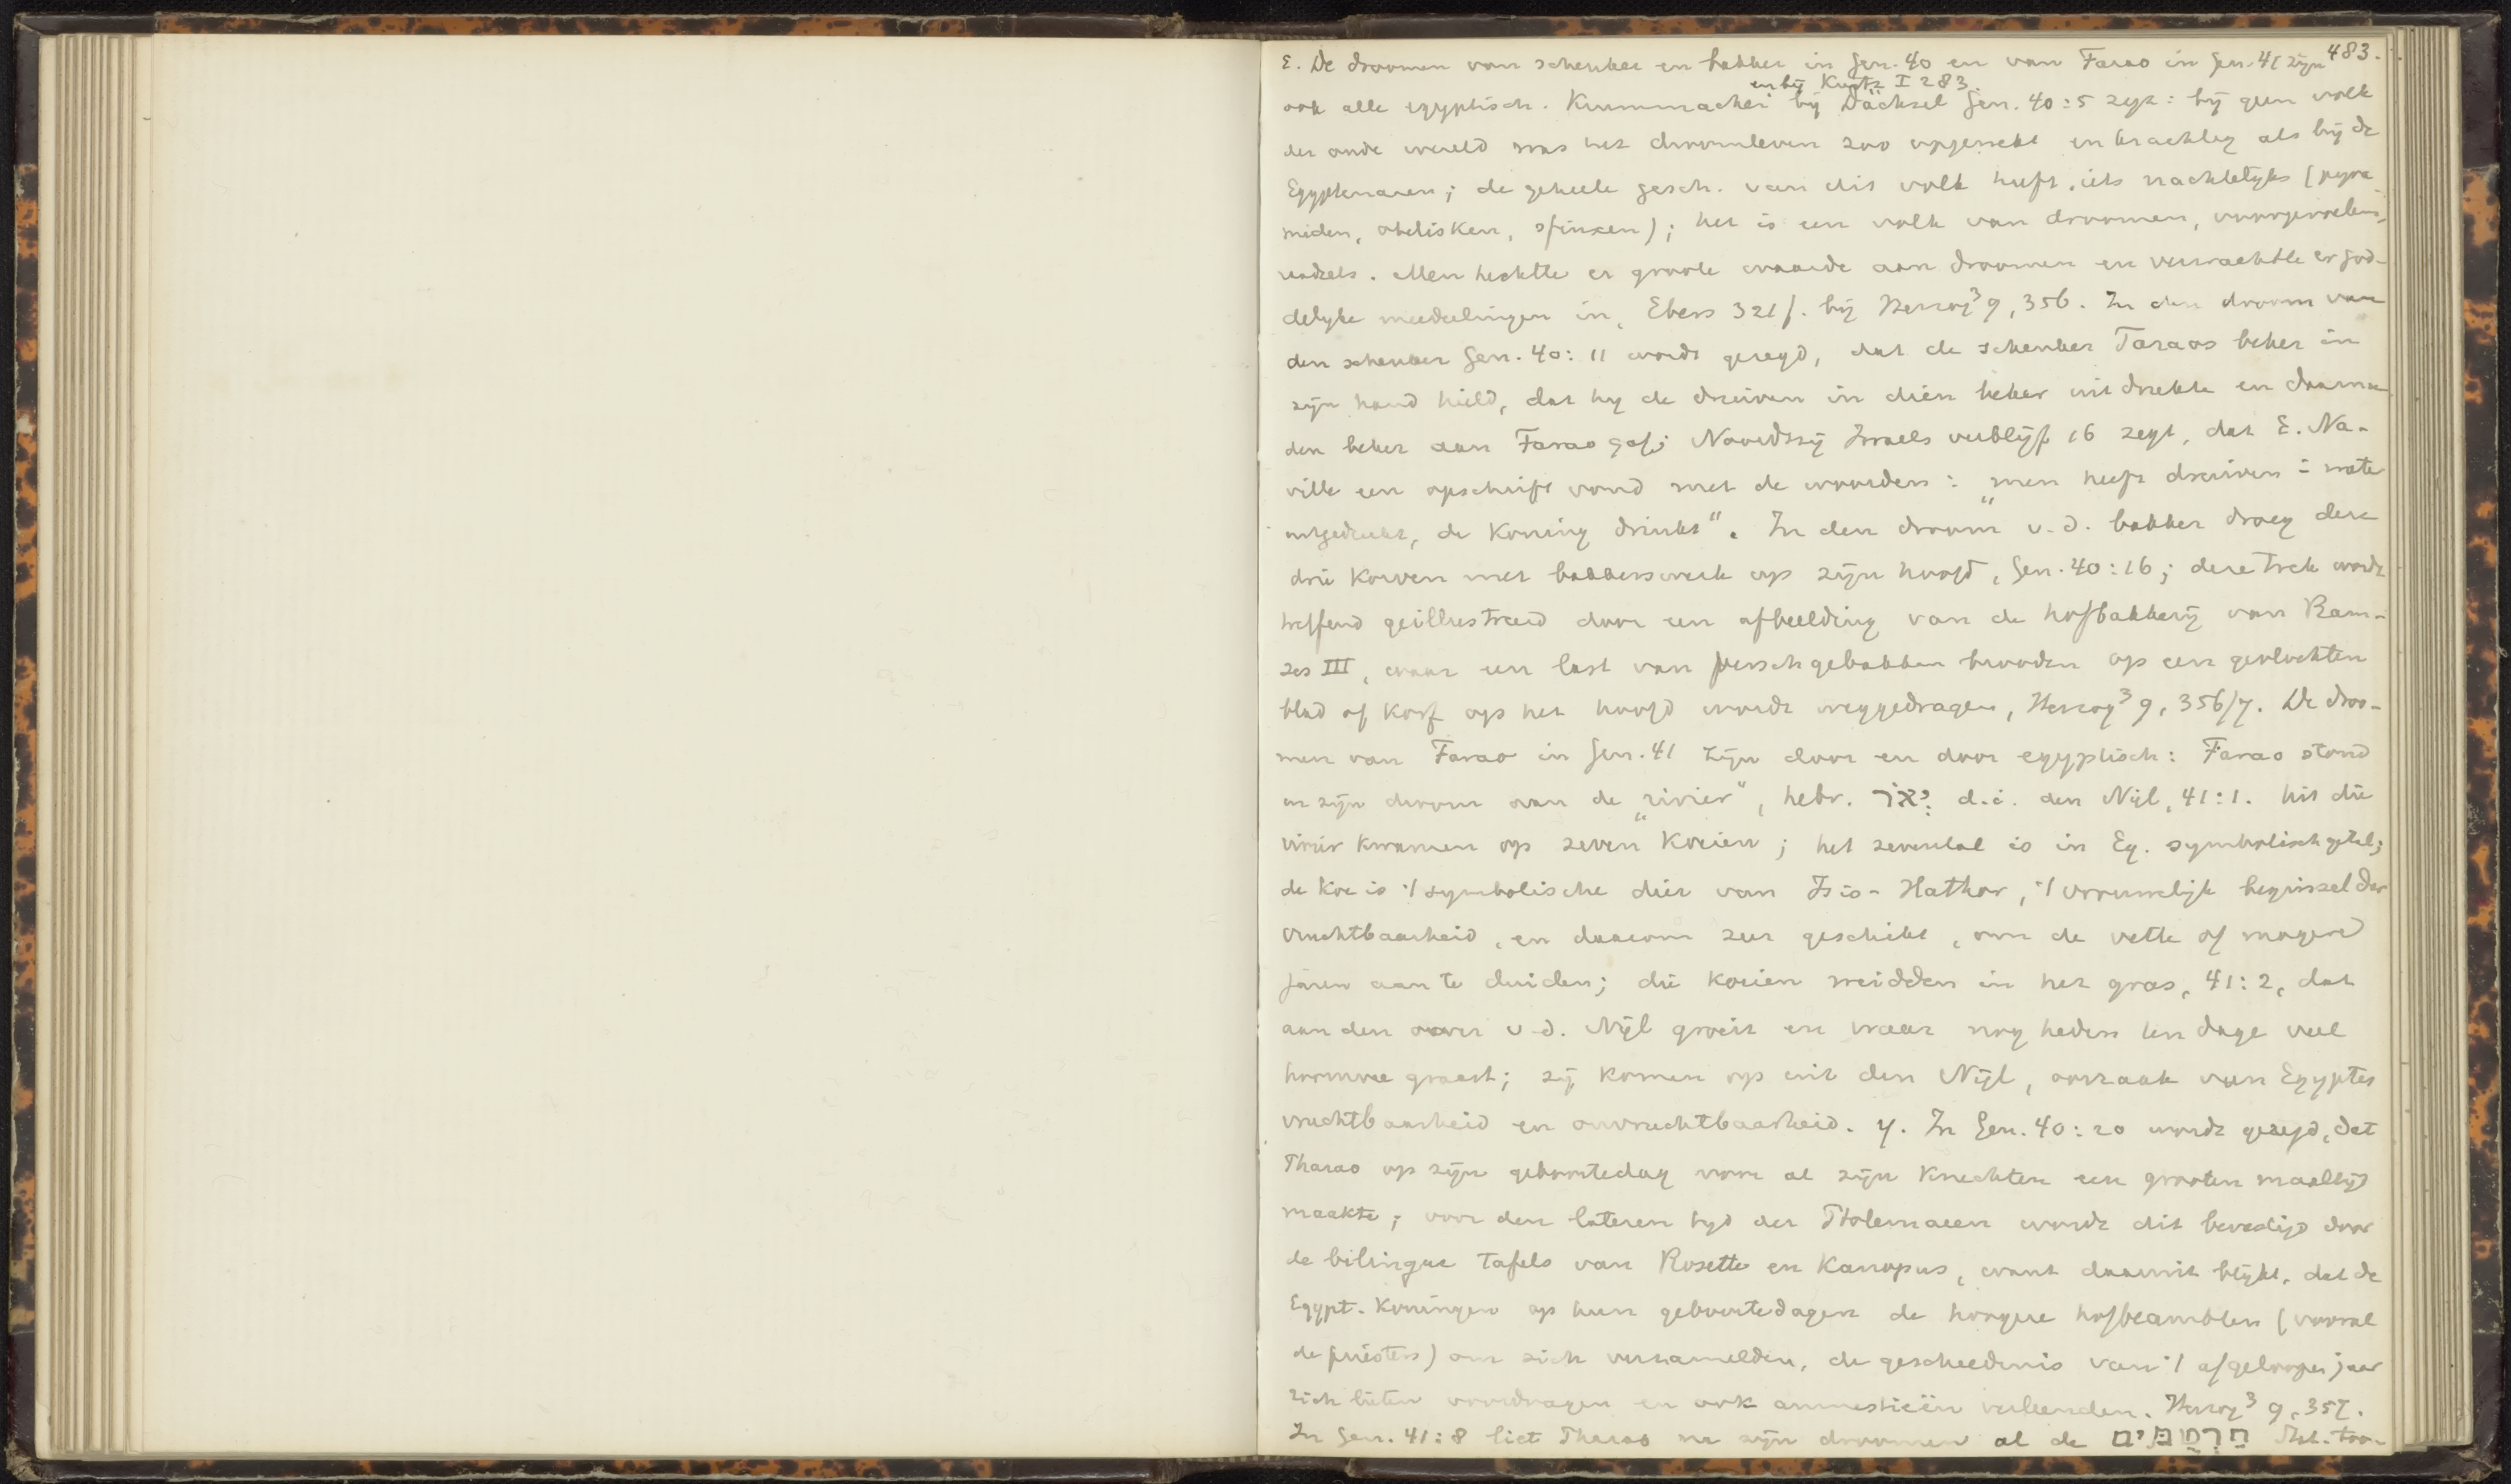 483.
ε. De droomen van schenker en bakker in Gen. 40 en van Farao in Gen. 41 zijn
en bij Kurtz I 283
ook alle egyptisch. Krummacher bij Dächsel Gen. 40:5 zegt: bij geen volk
der oude wereld was het droomleven zoo opgewekt en krachtig als bij de
Egyptenaren; de geheele gesch. van dit volk heeft iets nachtelijks (pyra-
miden, obelisken, sfinxen); het is een volk van droomen, voorgevoelens,
raadsels. Men hechtte er groote waarde aan droomen en verwachtte er god-
delijke mededelingen in, Ebers 321f. bij Herzog³ 9, 356. In den droom van
den schenker Gen. 40:11 wordt gezegd, dat de schenker Faraos beker in
zijn hand hield, dat hij de druiven in dien beker uitdrukte en daarna
den beker aan Farao gaf; Noordtzij Israels verblijf 16 zegt, dat E. Na-
ville een opschrift vond met de woorden: „men heeft druiven i water
uitgedrukt, de koning drinkt". In den droom v.d. bakker droeg deze
drie korven met bakkerswerk op zijn hoofd, Gen. 40:16; deze trek wordt
treffend geillustreerd door een afbeelding van de hofbakkerij van Ram-
ses III, waar een last van versch gebakken brooden op een gevlochten
blad of korf op het hoofd wordt weggedragen, Herzog³ 9, 356/7. De droo-
men van Farao in Gen. 41 zijn door en door egyptisch: Farao stond
in zijn droom aan de „rivier", hebr. יְאֹר d.i. den Nijl, 41:1. Uit die
rivier kwamen op zeven koeien; het zevental is in Eg. symbolisch getal;
de koe is 't symbolische dier van Isis-Hathor, 't vrouwelijk beginsel der
vruchtbaarheid, en daarom zeer geschikt, om de vette of magere
jaren aan te duiden; die koeien weidden in het gras, 41:2, dat
aan den oever v.d. Nijl groeit en waar nog heden ten dage veel
hoornvee graast; zij komen op uit den Nijl, oorzaak van Egyptes
vruchtbaarheid en onvruchtbaarheid. η. In Gen. 40:20 wordt gezegd, dat
Pharao op zijn geboortedag voor al zijn knechten een grooten maaltijd
maakte; voor den lateren tijd der Ptolemaeen wordt dit bevestigd door
de bilingue tafels van Rosette en Kanopus, want daaruit blijkt, dat de
Egypt. koningen op hun geboortedagen de hoogere hofbeambten (vooral
de priesters) om zich verzamelden, de geschiedenis van 't afgeloopen jaar
zich lieten voordragen en ook amnestieën verleenden. Herzog³ 9, 357.
In Gen. 41:8 liet Pharao na zijn droomen al de חרטמים St.V. too-